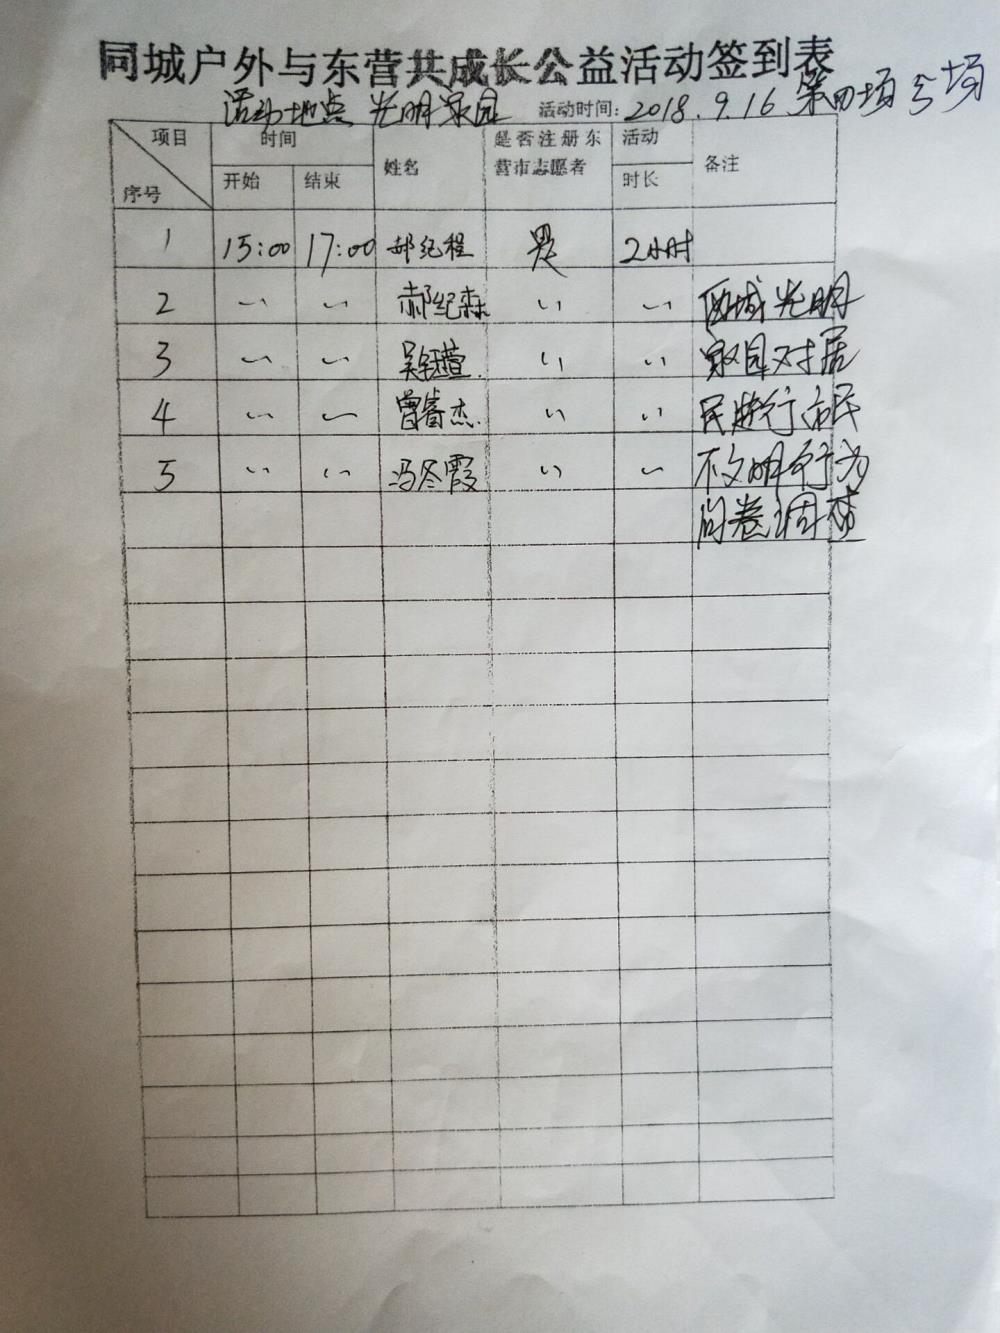 同城户外与东营共成长公益活动签到表
活动地点 光明家园 活动时间: 2018.9.16 第四场
项目 时间 姓名 是否注册东营市志愿者 活动时长 备注
序号 开始 结束
1 15:00 17:00 郝纪程 是 2小时
2 〃 〃 郝纪森 〃 〃 西城光明
3 〃 〃 〃 〃 家园对居
4 〃 〃 曾睿杰 〃 〃 民进行市民
5 〃 〃 冯冬霞 〃 〃 不文明行为
问卷调查